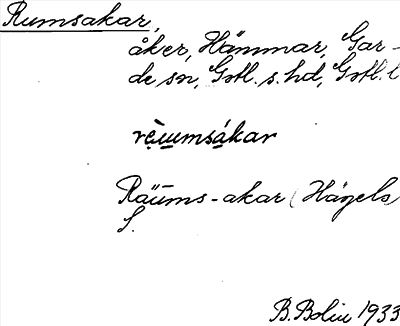 Rumsakar,
åker, Hämmar, Gar-
de sn, Gotl. s. hd, Gotl. l
rèu̲msákar
Räūms-akar (Hägels
S.
B. Bolin 1933